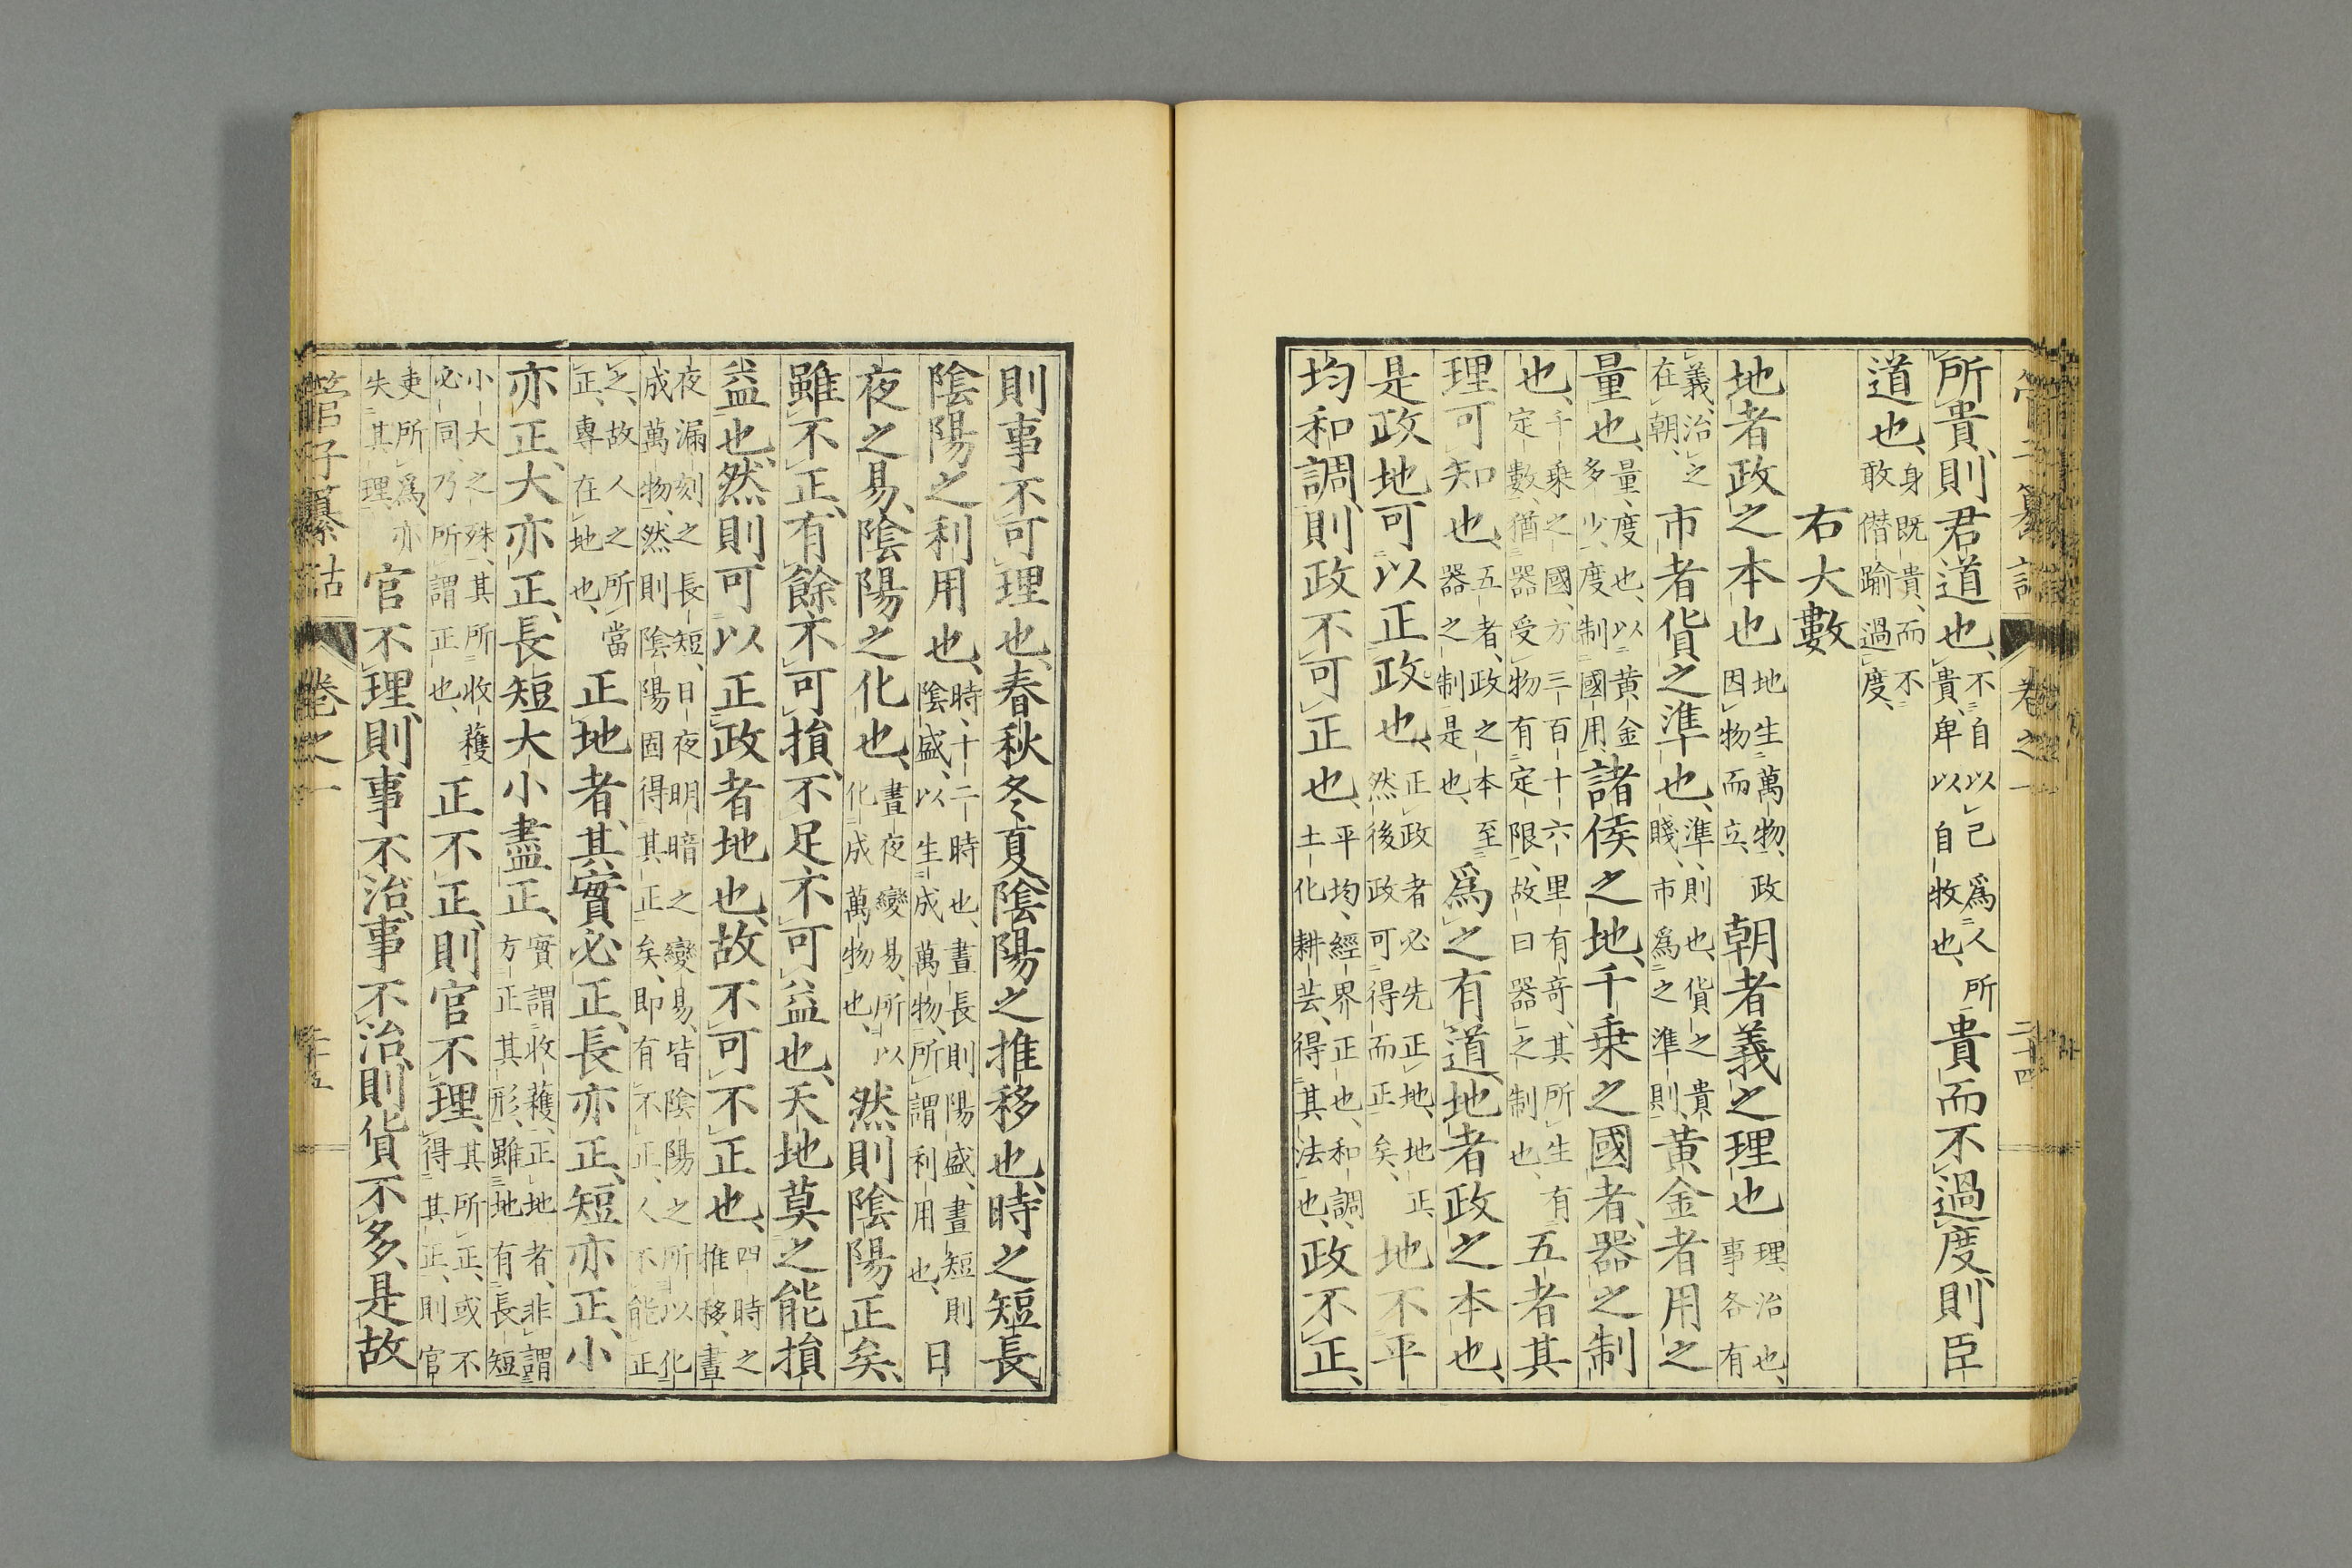 管子纂詁 卷之一 二十四
所貴、則君道也、不自以己爲人所貴、卑以自牧也、貴而不過度、則臣
道也、身既貴、而不敢僭踰過度、
右大數
地者政之本也地生萬物、政因物而立、朝者義之理也理、治也、事各有
義、治之在朝、市者貨之準也、準、則也、貨之貴賤、市爲之準則黃金者用之
量也、量、度也、以黃金多少、度制國用、諸侯之地、千乘之國者、器之制
也、千乘之國、方三百十六里有奇、其所生有定數、猶器受物有定限、故曰器之制也、五者其
理可知也、五者、政之本至器之制是也、爲之有道、地者政之本也、
是政地可以正政也、正政者必先正地、地正、然後政可得而正矣、地不平
均和調、則政不可正也、平均、經界正也、和調、土化耕芸、得其法也、政不正、
則事不可理也、春秋冬夏陰陽之推移也、時之短長、
陰陽之利用也、時、十二時也、晝長則陽盛、晝短則陰盛、以生成萬物、所謂利用也、日
夜之易、陰陽之化也、晝夜變易、所以化成萬物也、然則陰陽正矣、
雖不正、有餘不可損、不足不可益也、天地莫之能損
益也、然則可以正政者地也、故不可不正也、四時之推移、晝
夜漏刻之長短、日夜明暗之變易、皆陰陽之所以化成萬物、然則陰陽固得其正矣、即有不正、人不能正
之、故人之所當正、專在地也、正地者、其實必正、長亦正、短亦正、小
亦正、大亦正、長短大小盡正、實謂收穫、正地者、非謂方正其形、雖地有長短
小大之殊、其所收穫必同乃所謂正也、正不正、則官不理、其所正、或不得其正、則官
吏所爲、亦失其理官不理、則事不治、事不治、則貨不多、是故
管子纂詁 卷之一 二十五